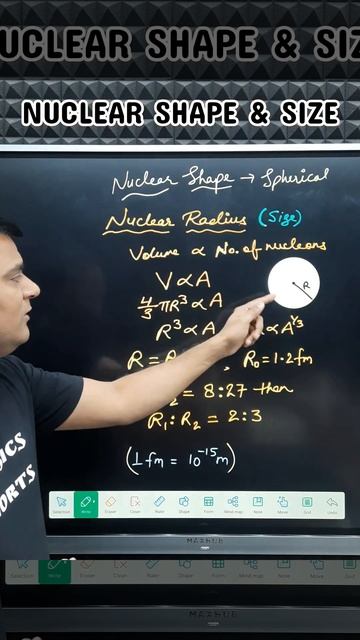 NUCLEAR SHAPE & SIZ
NUCLEAR SHAPE & SIZE
Nuclear Shape → Spherical
Nuclear Radius (Size)
Volume ∝ No. of nucleons
V ∝ A
R
4/3 πR³ ∝ A
R³ ∝ A ∝ A^1/3
R = R₀ = 1.2 fm
₂ = 8:27 then
R₁ : R₂ = 2:3
(1 fm = 10⁻¹⁵ m)
ICS
ORTS
Selection Write Eraser Clean Ruler Shape Form Mind map Note More Grid Undo
MAXHUB
Write Eraser Clean Ruler Shape Form Mind map Note More Grid
MAXHUB